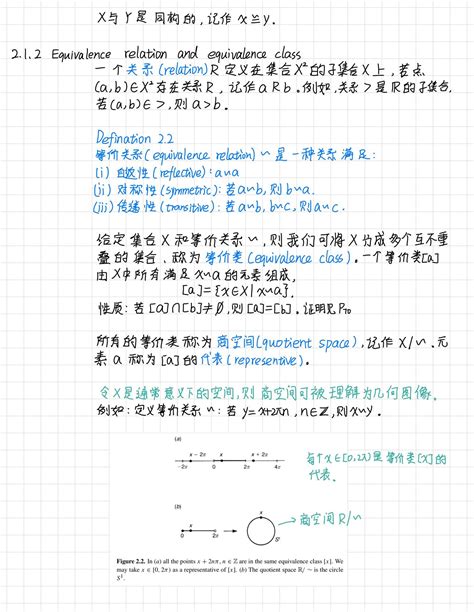 X与Y是同构的，记作 X≅Y.
2.1.2 Equivalence relation and equivalence class
一个关系(relation)R 定义在集合X²的子集合X上，若点
(a,b)∈X²存在关系R，记作 aRb.例如，关系>是ℝ的子集合，
若(a,b)∈>，则a>b.
Defination 2.2
等价关系(equivalence relation) ~ 是一种关系满足:
(i) 自反性(reflective): a~a
(ii) 对称性(symmetric): 若a~b, 则b~a.
(iii) 传递性(transitive): 若a~b, b~c, 则a~c.
给定集合X和等价关系~，则我们可将X分成多个互不重
叠的集合、称为等价类(equivalence class).一个等价类[a]
由X中所有满足x~a的元素组成，
[a]={x∈X|x~a}.
性质: 若[a]∩[b]≠∅, 则[a]=[b]. 证明见P70
所有的等价类称为商空间(quotient space), 记作X/~.元
素a称为[a]的代表(representive).
令X是通常意义下的空间,则商空间可被理解为几何图像.
例如: 定义等价关系~: 若y=x+2πn, n∈Z, 则x~y.
(a)
x − 2π x x + 2π
−2π 0 2π 4π
每个x∈[0,2π)是等价类[x]的
代表.
(b)
x x
0 2π S¹
商空间R/~
Figure 2.2. In (a) all the points x + 2nπ, n ∈ Z are in the same equivalence class [x]. We
may take x ∈ [0, 2π) as a representative of [x]. (b) The quotient space R/ ~ is the circle
S¹.